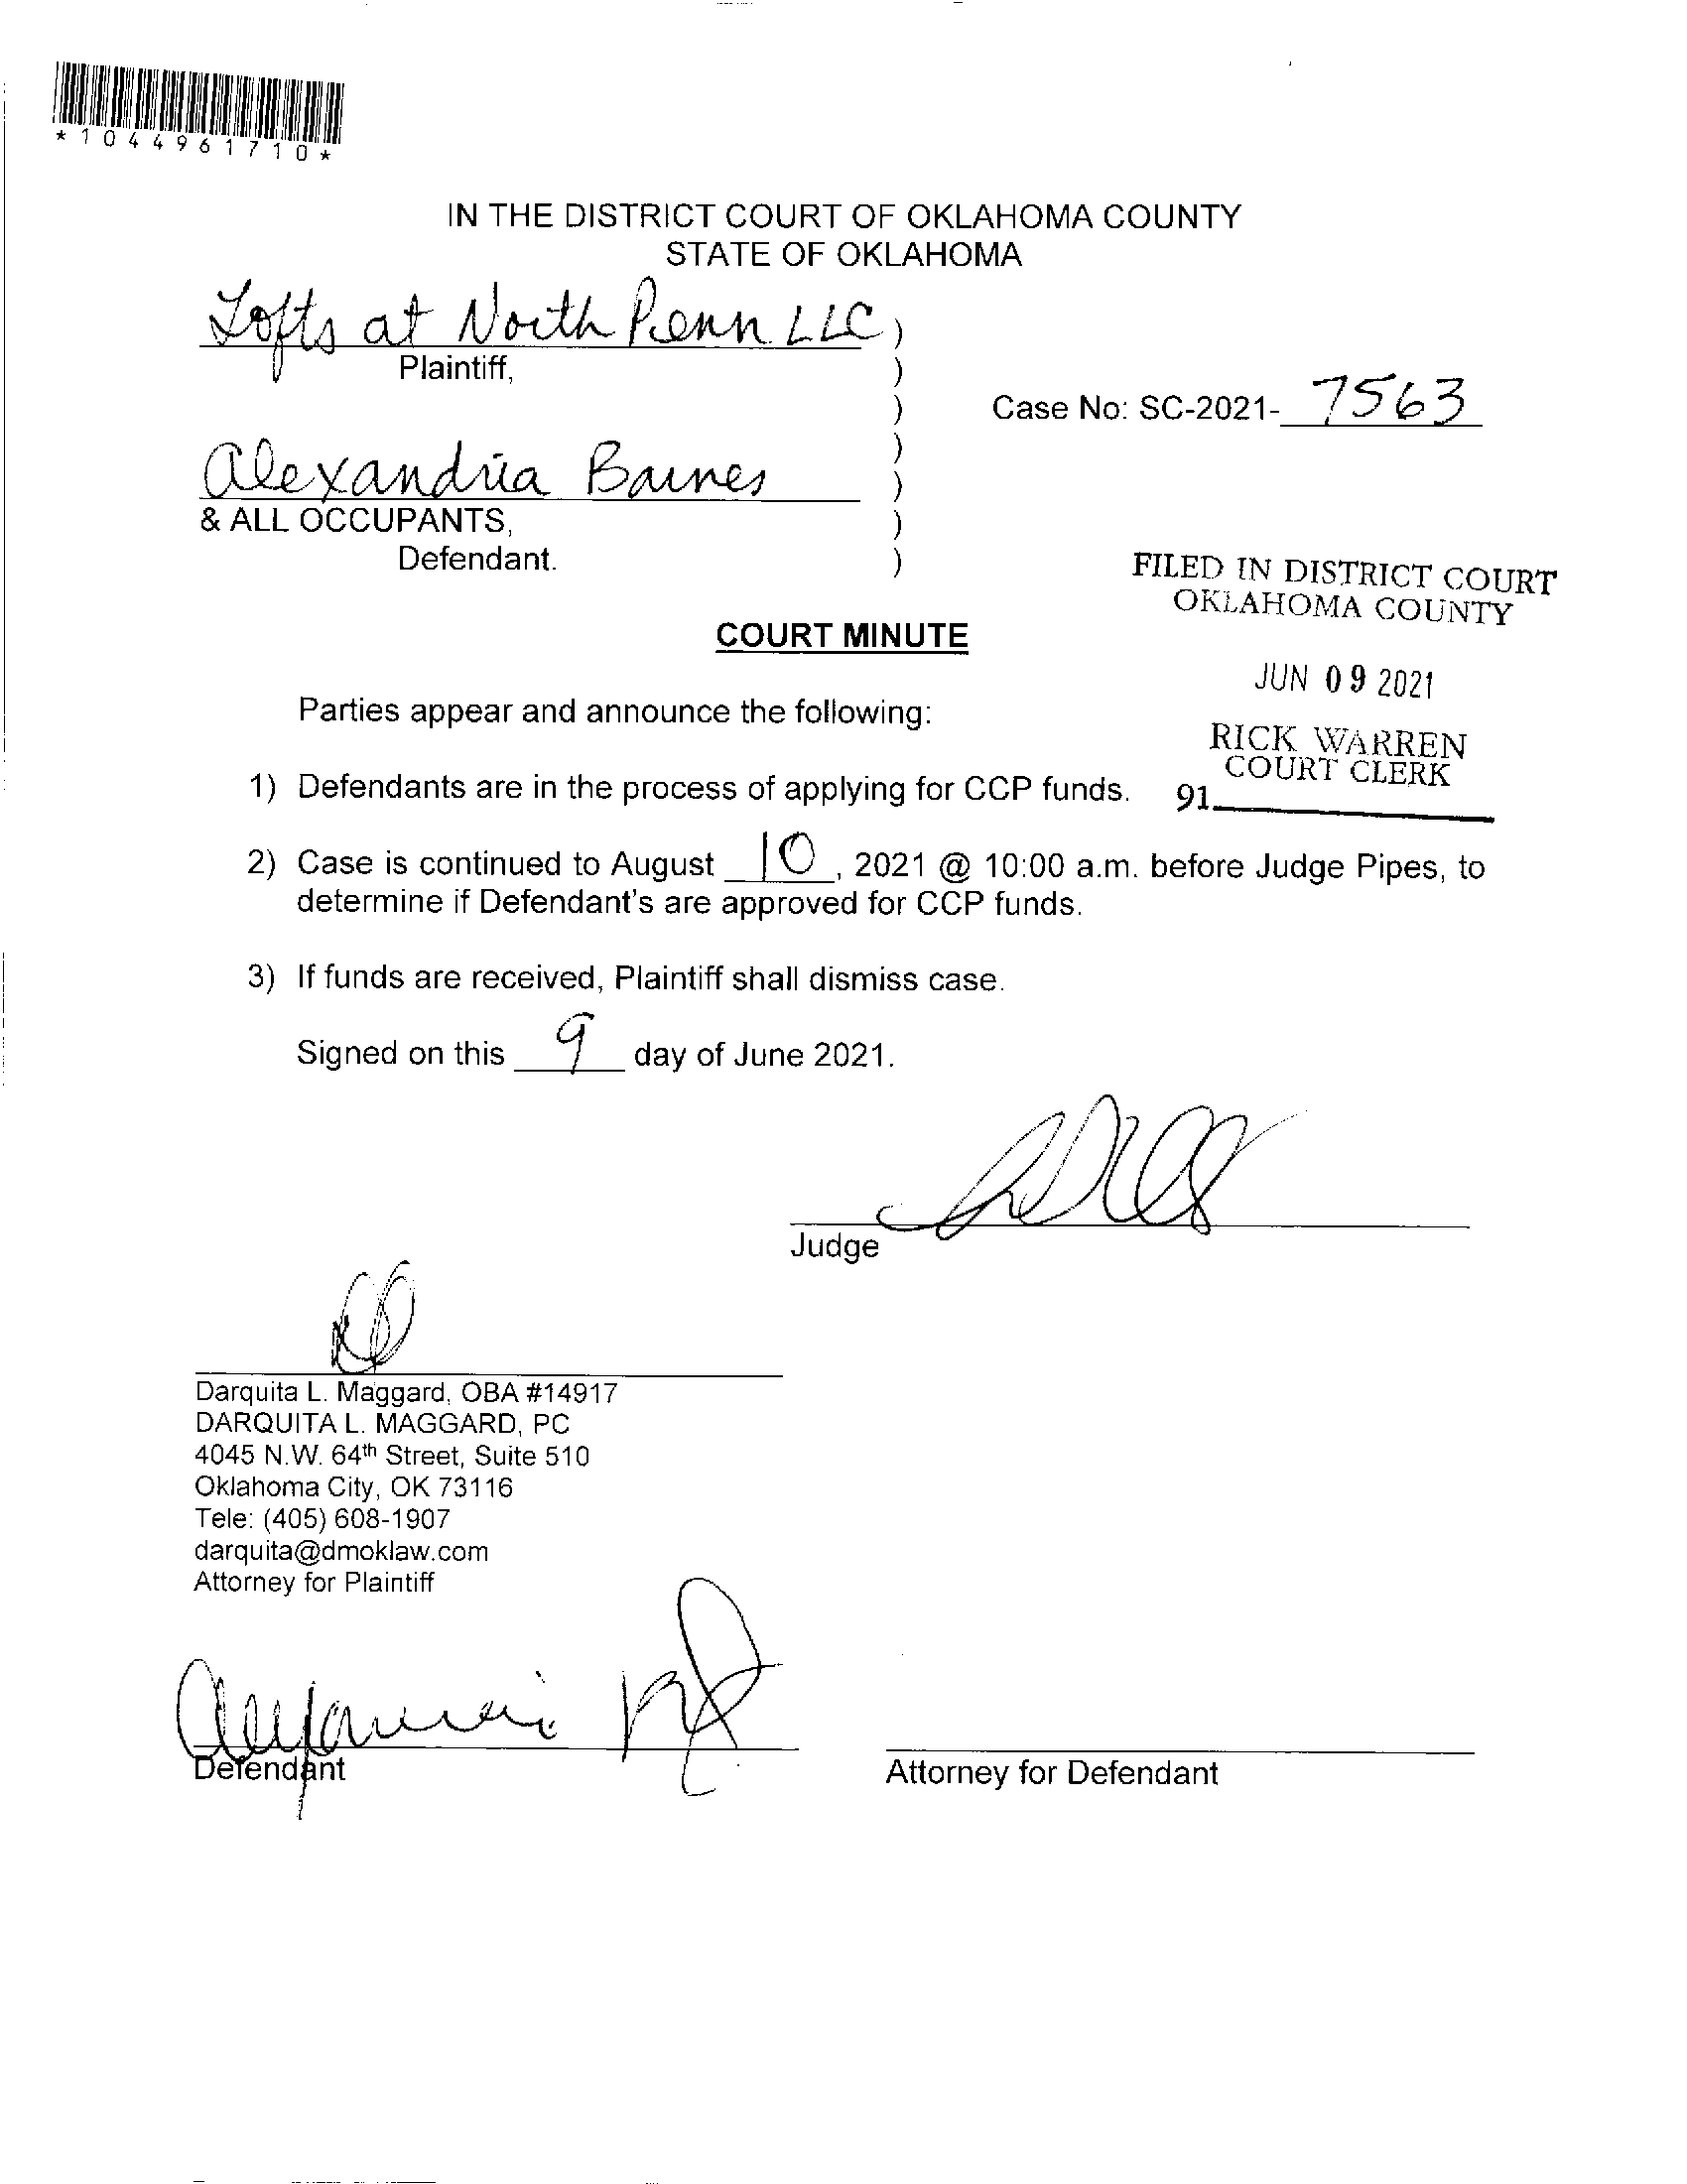 *1044961710*
IN THE DISTRICT COURT OF OKLAHOMA COUNTY
STATE OF OKLAHOMA
Lofts at North Penn LLC )
Plaintiff, )
) Case No: SC-2021- 7563
)
Alexandria Barnes )
& ALL OCCUPANTS, )
Defendant. )
FILED IN DISTRICT COURT
OKLAHOMA COUNTY
COURT MINUTE
JUN 09 2021
Parties appear and announce the following:
RICK WARREN
COURT CLERK
91
1) Defendants are in the process of applying for CCP funds.
2) Case is continued to August 10, 2021 @ 10:00 a.m. before Judge Pipes, to
determine if Defendant's are approved for CCP funds.
3) If funds are received, Plaintiff shall dismiss case.
Signed on this 9 day of June 2021.
Judge
Darquita L. Maggard, OBA #14917
DARQUITA L. MAGGARD, PC
4045 N.W. 64th Street, Suite 510
Oklahoma City, OK 73116
Tele: (405) 608-1907
darquita@dmoklaw.com
Attorney for Plaintiff
Defendant
Attorney for Defendant